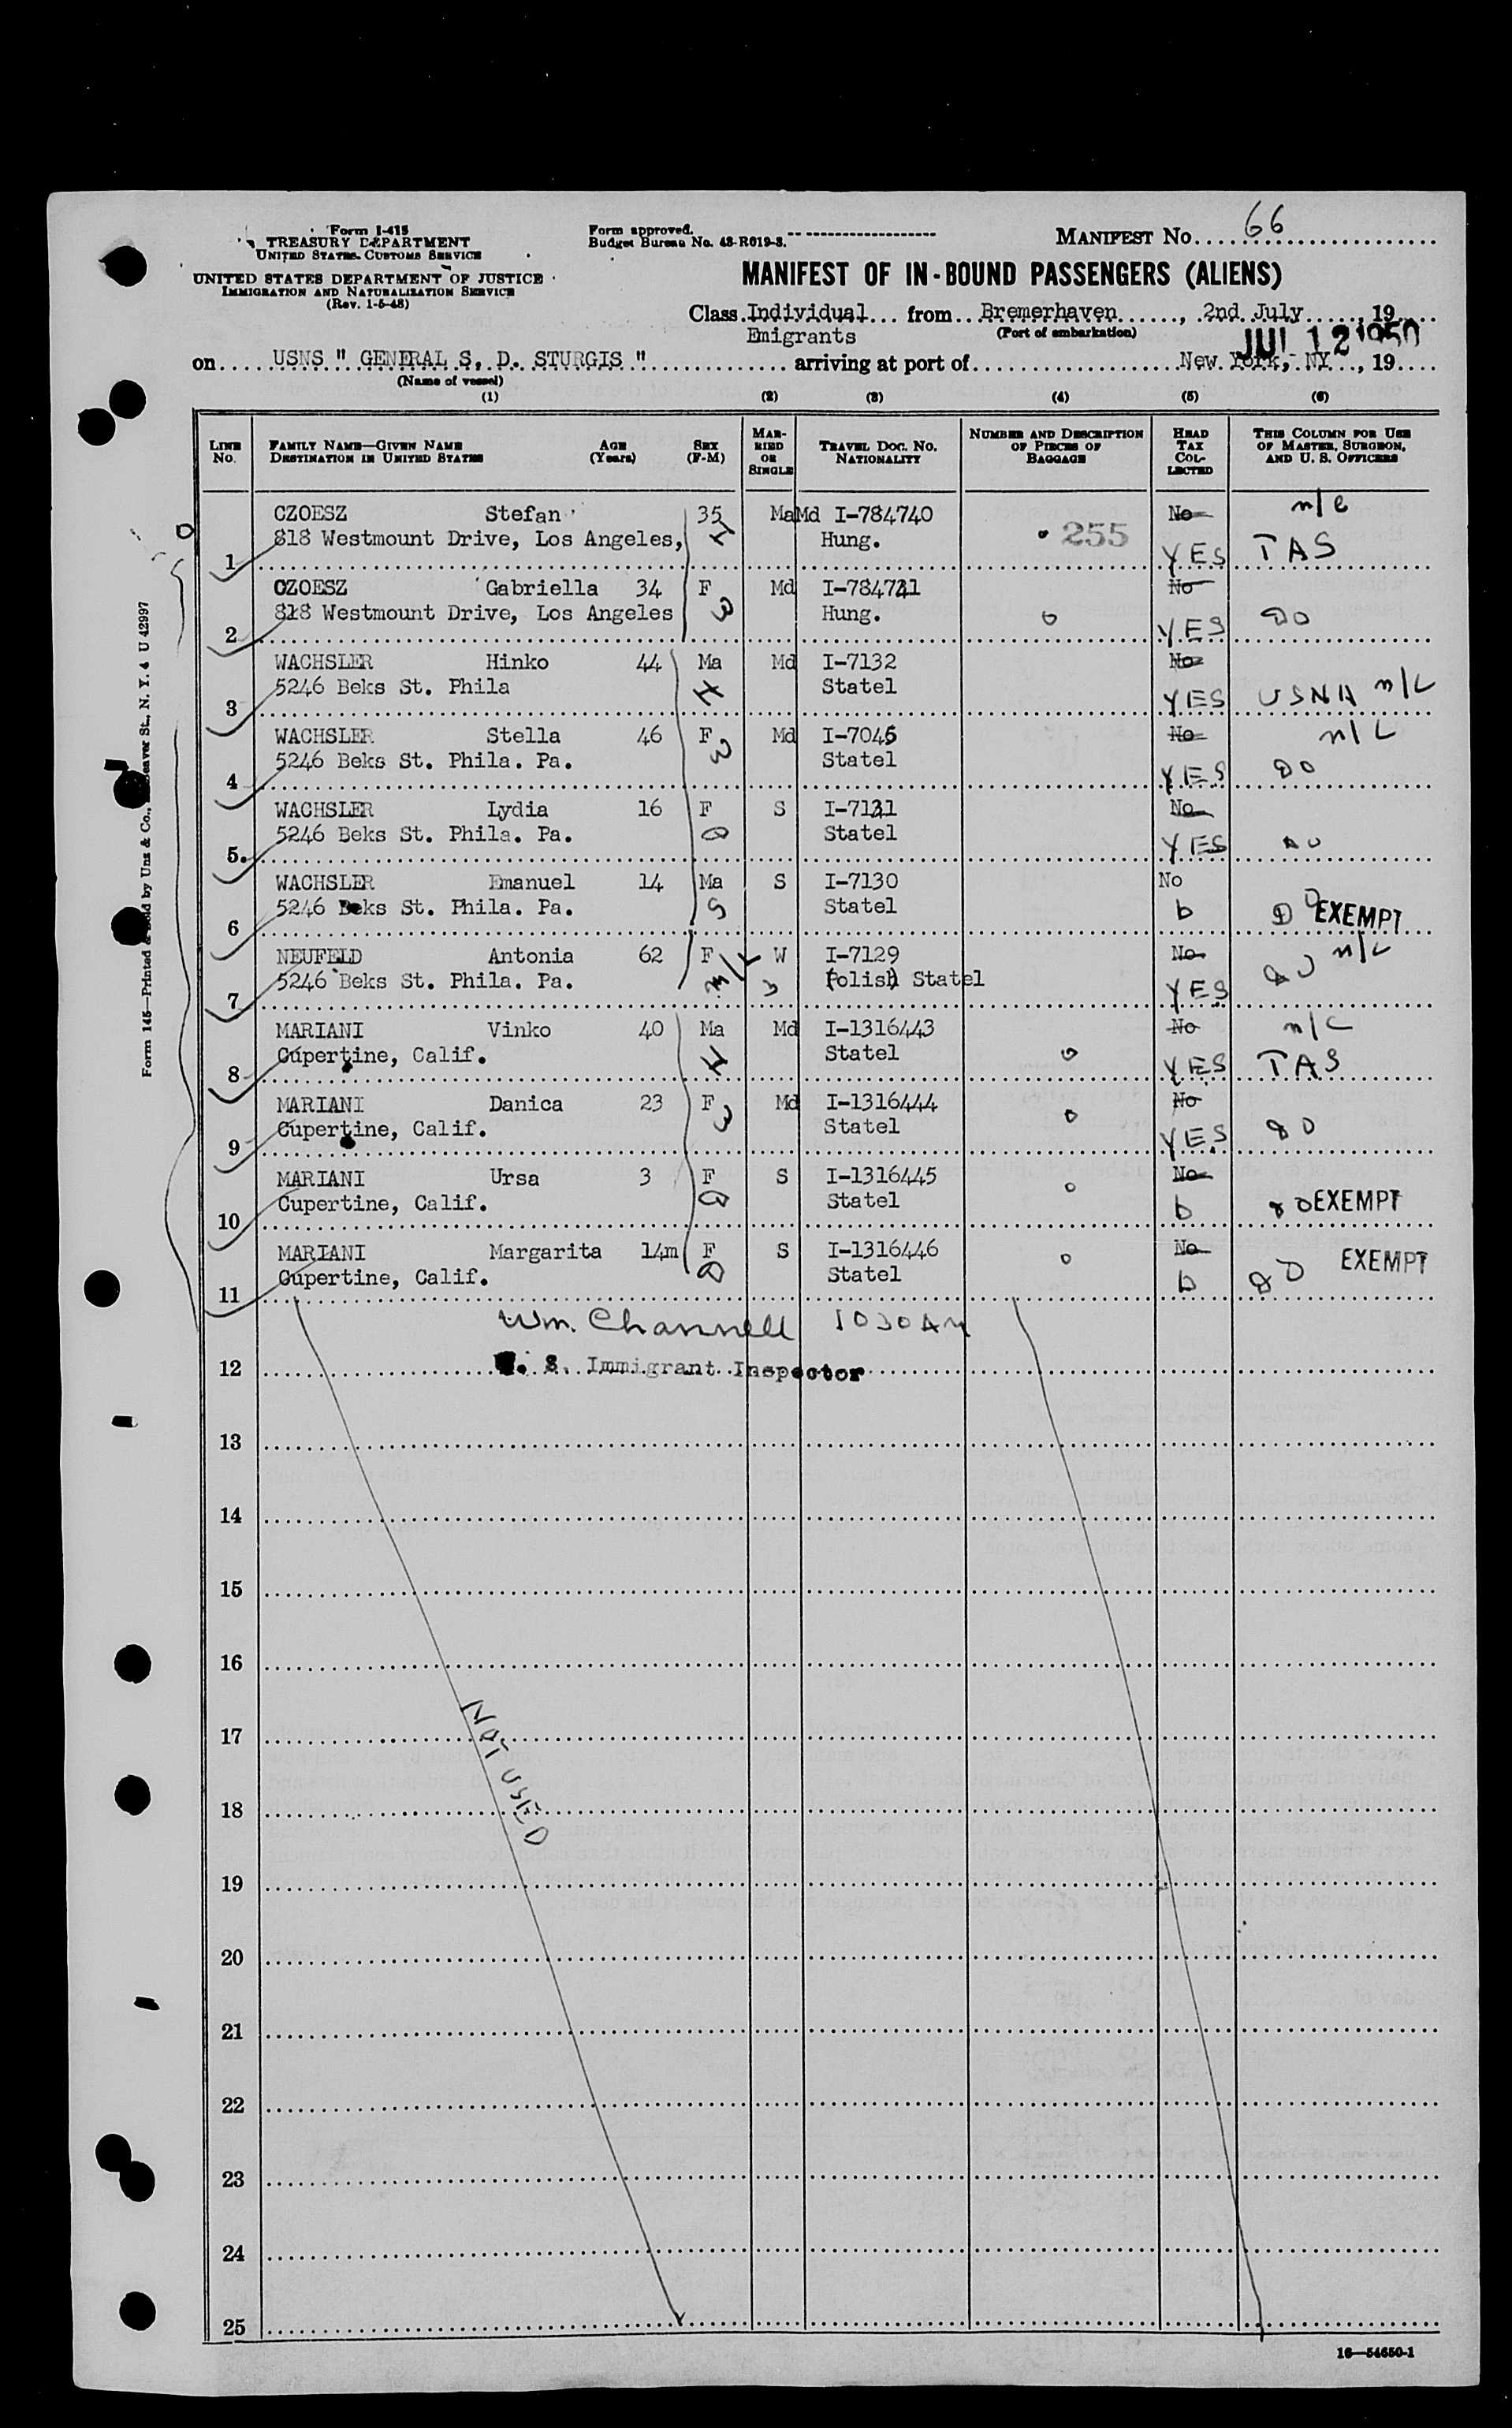 Form I-415
TREASURY DEPARTMENT
UNITED STATES CUSTOMS SERVICE
UNITED STATES DEPARTMENT OF JUSTICE
IMMIGRATION AND NATURALIZATION SERVICE
(Rev. 1-5-48)
Form approved.
Budget Bureau No. 43-R019-3.
MANIFEST No. 66
MANIFEST OF IN-BOUND PASSENGERS (ALIENS)
Class Individual from Bremerhaven, 2nd July, 19
Emigrants (Port of embarkation)
JUL 12 1950
on USNS " GENERAL S, D. STURGIS " arriving at port of New York, NY, 19
(Name of vessel)
(1) (2) (3) (4) (5) (6)
LINE No. FAMILY NAME—GIVEN NAME DESTINATION IN UNITED STATES AGE (Years) SEX (F-M) MARRIED OR SINGLE TRAVEL DOC. NO. NATIONALITY NUMBER AND DESCRIPTION OF PIECES OF BAGGAGE HEAD TAX COLLECTED THIS COLUMN FOR USE OF MASTER, SURGEON, AND U. S. OFFICERS
CZOESZ Stefan 35 Ma Md I-784740 No n/c
1 818 Westmount Drive, Los Angeles, H Hung. 255 YES TAS
CZOESZ Gabriella 34 F Md I-784741 No
2 818 Westmount Drive, Los Angeles W Hung. YES DO
WACHSLER Hinko 44 Ma Md I-7132 No
3 5246 Beks St. Phila H Statel YES USNA n/c
WACHSLER Stella 46 F Md I-7045 No n/c
4 5246 Beks St. Phila. Pa. W Statel YES DO
WACHSLER Lydia 16 F S I-7131 No
5. 5246 Beks St. Phila. Pa. D Statel YES DO
WACHSLER Emanuel 14 Ma S I-7130 No
6 5246 Beks St. Phila. Pa. S Statel b DO EXEMPT
NEUFELD Antonia 62 F W I-7129 No n/c
7 5246 Beks St. Phila. Pa. (Polish) Statel YES DO
MARIANI Vinko 40 Ma Md I-1316443 No n/c
8 Cupertine, Calif. H Statel YES TAS
MARIANI Danica 23 F Md I-1316444 No
9 Cupertine, Calif. W Statel YES DO
MARIANI Ursa 3 F S I-1316445 No
10 Cupertine, Calif. D Statel b DO EXEMPT
MARIANI Margarita 14m F S I-1316446 No EXEMPT
11 Cupertine, Calif. D Statel b DO
Wm. Channell 1030 AM
12 U. S. Immigrant Inspector
13
14
15
16
17
NOT USED
18
19
20
21
22
23
24
25
16—54650-1
Form 145—Printed & Sold by Unz & Co., Beaver St., N. Y. 4 U 42997